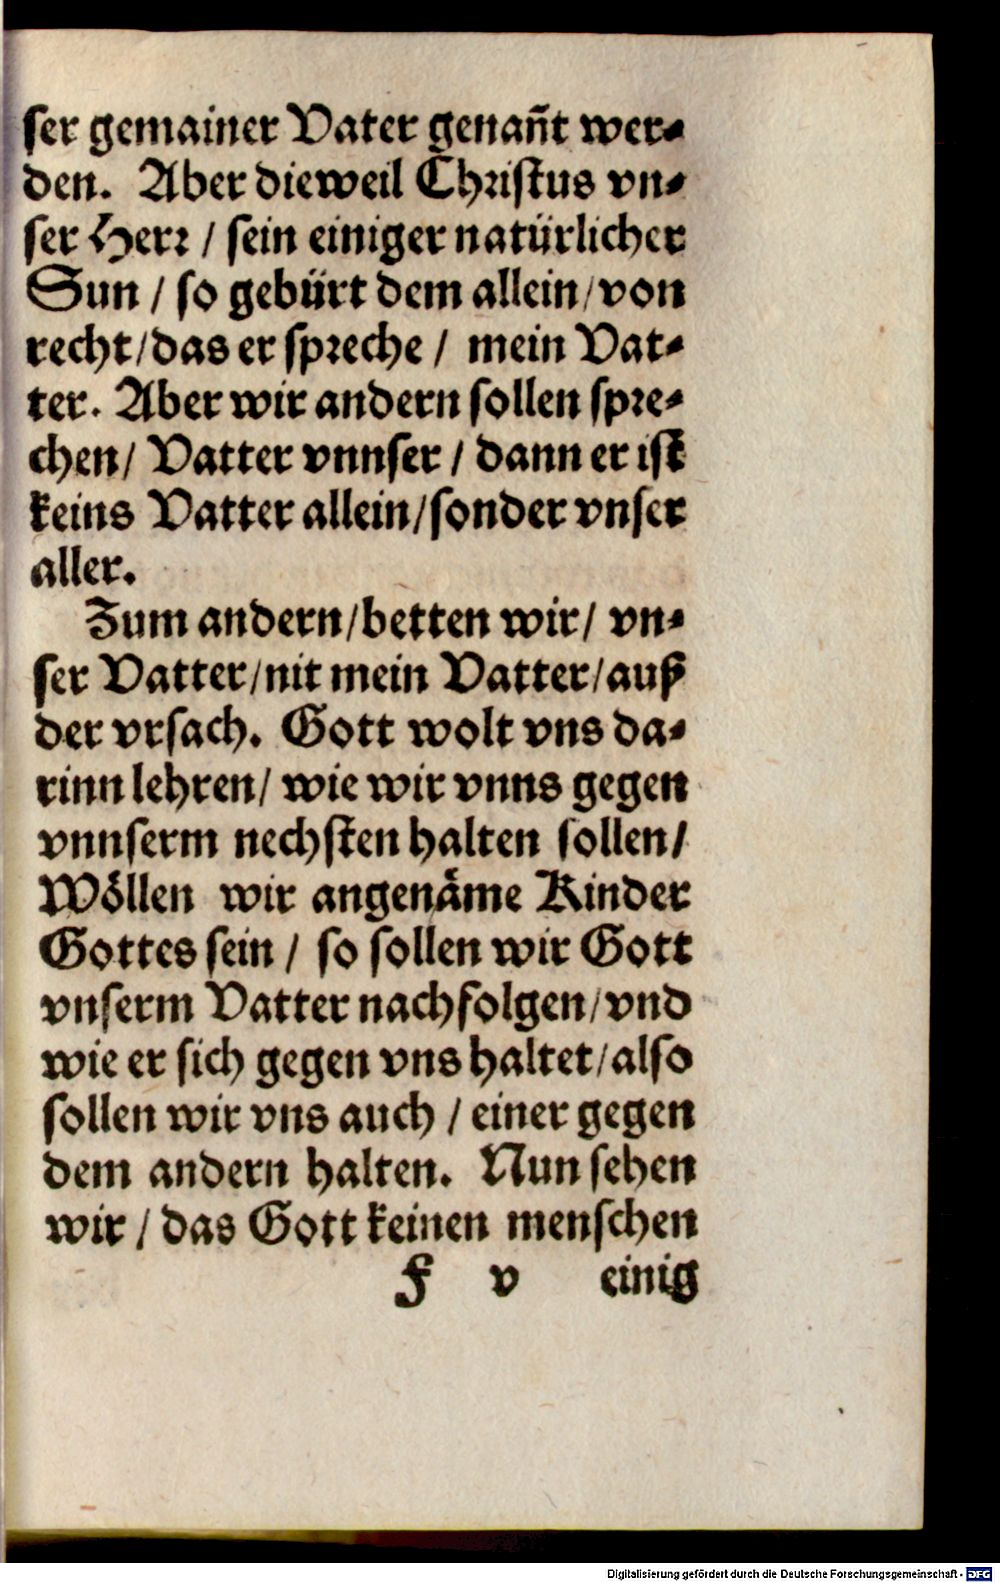 ſer gemainer Vater genañt wer⸗
den. Aber dieweil Chꝛiſtus vn⸗
ſer Herꝛ / ſein einiger natürlicher
Sun / ſo gebürt dem allein/von
recht/das er ſpꝛeche / mein Vat⸗
ter. Aber wir andern ſollen ſpꝛe⸗
chen/ Vatter vnnſer / dann er iſt
keins Vatter allein/ſonder vnſer
aller.
Zum andern/betten wir/ vn⸗
ſer Vatter/nit mein Vatter/auß
der vrſach. Gott wolt vns da⸗
rinn lehren/ wie wir vnns gegen
vnnſerm nechſten halten ſollen/
Wöllen wir angenäme Kinder
Gottes ſein / ſo ſollen wir Gott
vnſerm Vatter nachfolgen/vnd
wie er ſich gegen vns haltet/alſo
ſollen wir vns auch / einer gegen
dem andern halten. Nun ſehen
wir / das Gott keinen menſchen
F v einig
Digitalisierung gefördert durch die Deutsche Forschungsgemeinschaft - DFG